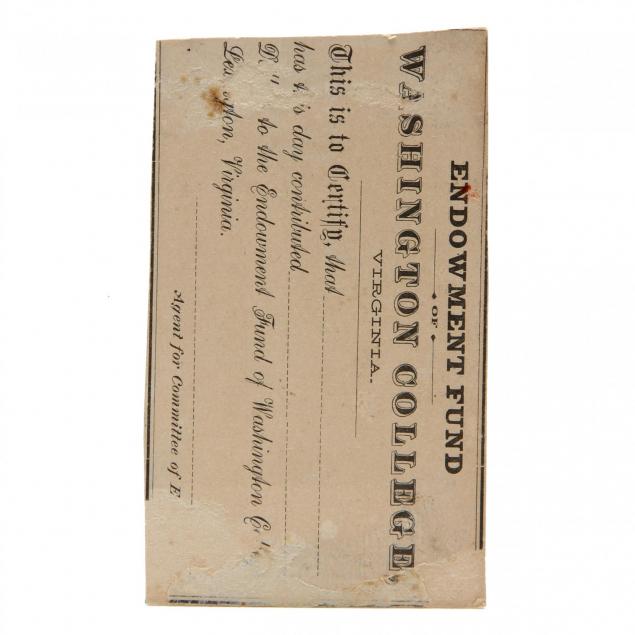 ENDOWMENT FUND
OF
WASHINGTON COLLEGE,
VIRGINIA.
This is to Certify, that
has this day contributed
to the Endowment Fund of Washington
Virginia.
Agent for Committee of E